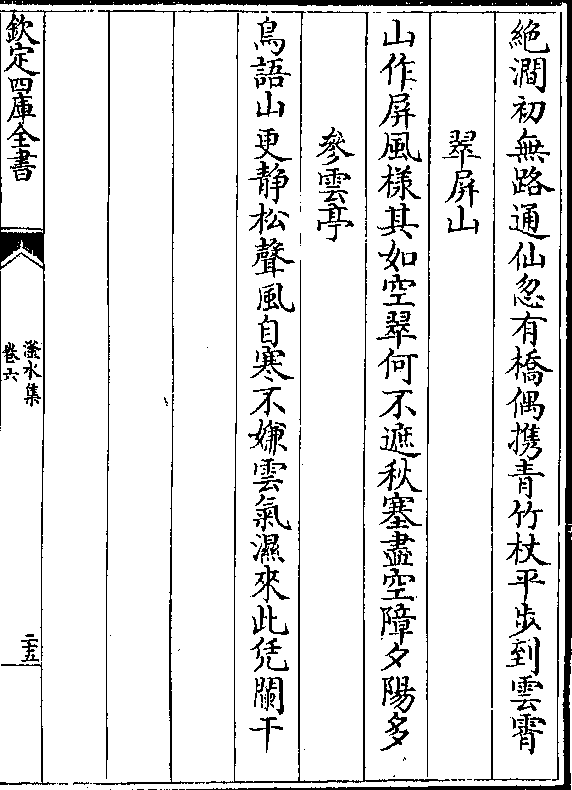 絶澗初無路通仙忽有橋偶携青竹杖平步到雲霄
翠屏山
山作屏風樣其如空翠何不遮秋塞盡空障夕陽多
參雲亭
鳥語山更静松聲風自寒不嫌雲氣濕來此凭闌干
欽定四庫全書
滏水集
卷六
二十五